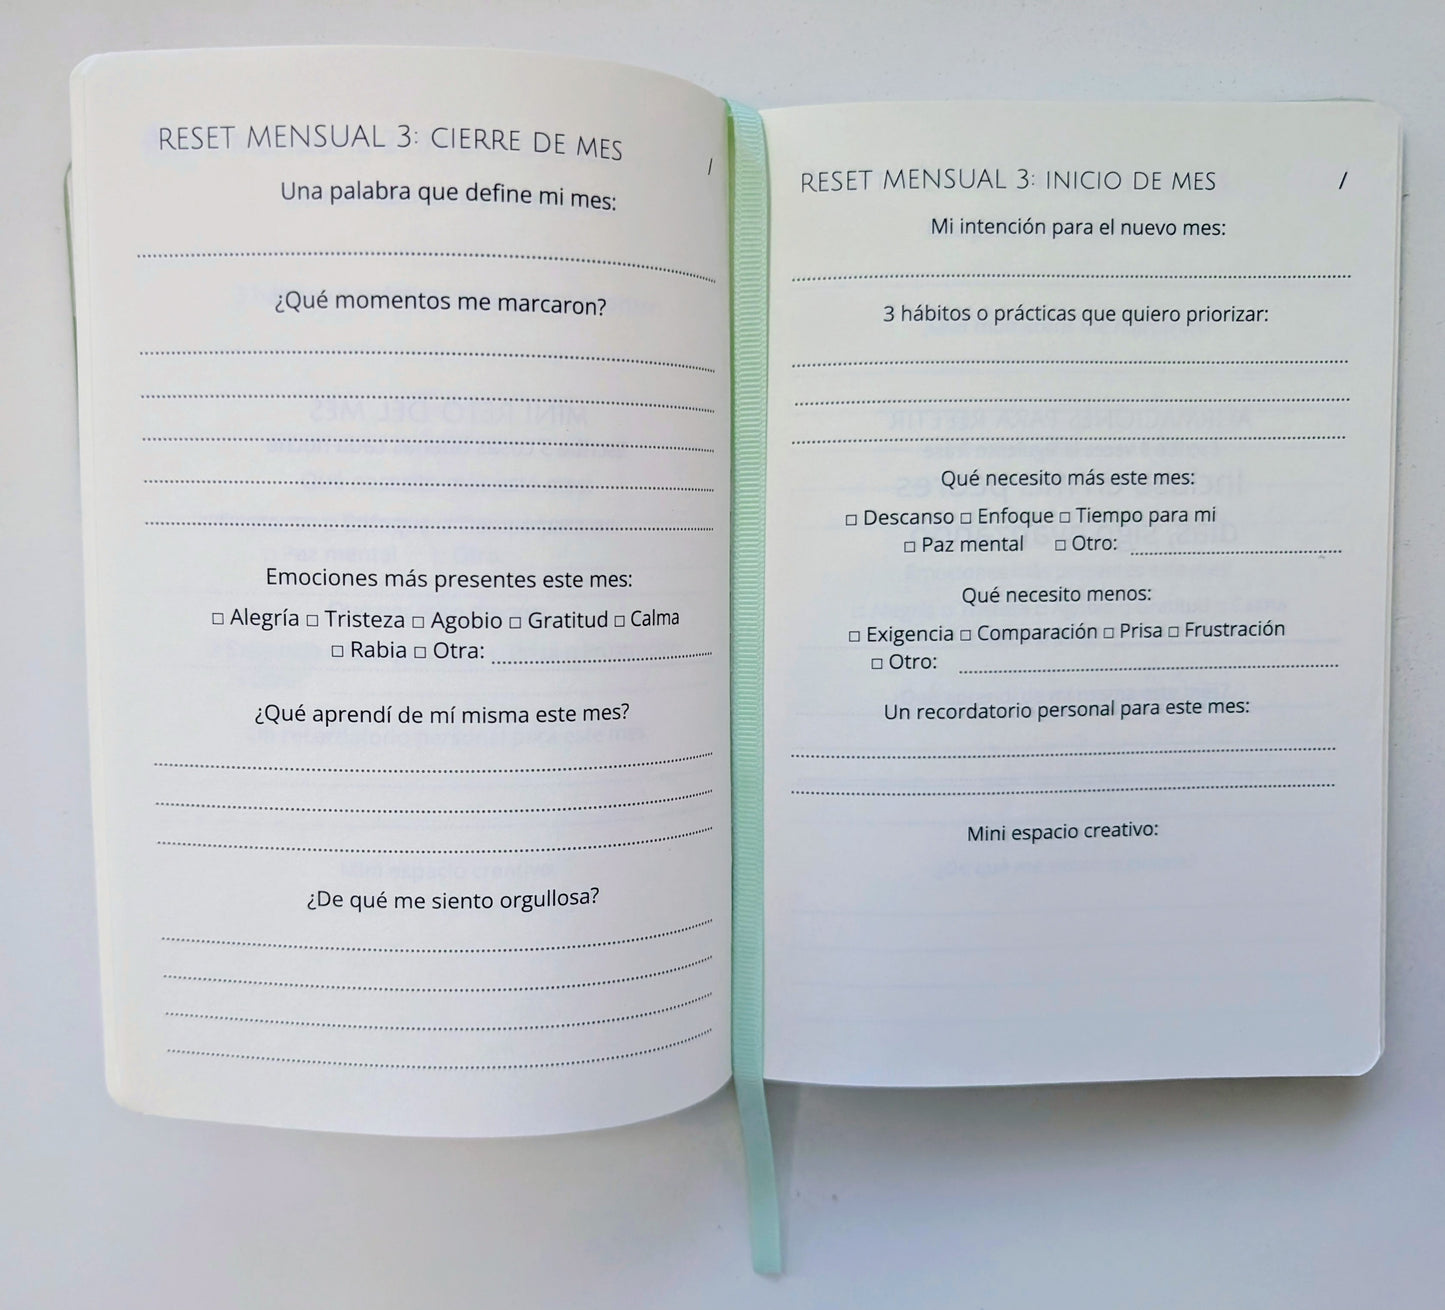 RESET MENSUAL 3: CIERRE DE MES
/
Una palabra que define mi mes:
¿Qué momentos me marcaron?
Emociones más presentes este mes:
□ Alegría □ Tristeza □ Agobio □ Gratitud □ Calma
□ Rabia □ Otra:
¿Qué aprendí de mí misma este mes?
¿De qué me siento orgullosa?
RESET MENSUAL 3: INICIO DE MES
/
Mi intención para el nuevo mes:
3 hábitos o prácticas que quiero priorizar:
Qué necesito más este mes:
□ Descanso □ Enfoque □ Tiempo para mi
□ Paz mental □ Otro:
Qué necesito menos:
□ Exigencia □ Comparación □ Prisa □ Frustración
□ Otro:
Un recordatorio personal para este mes:
Mini espacio creativo: